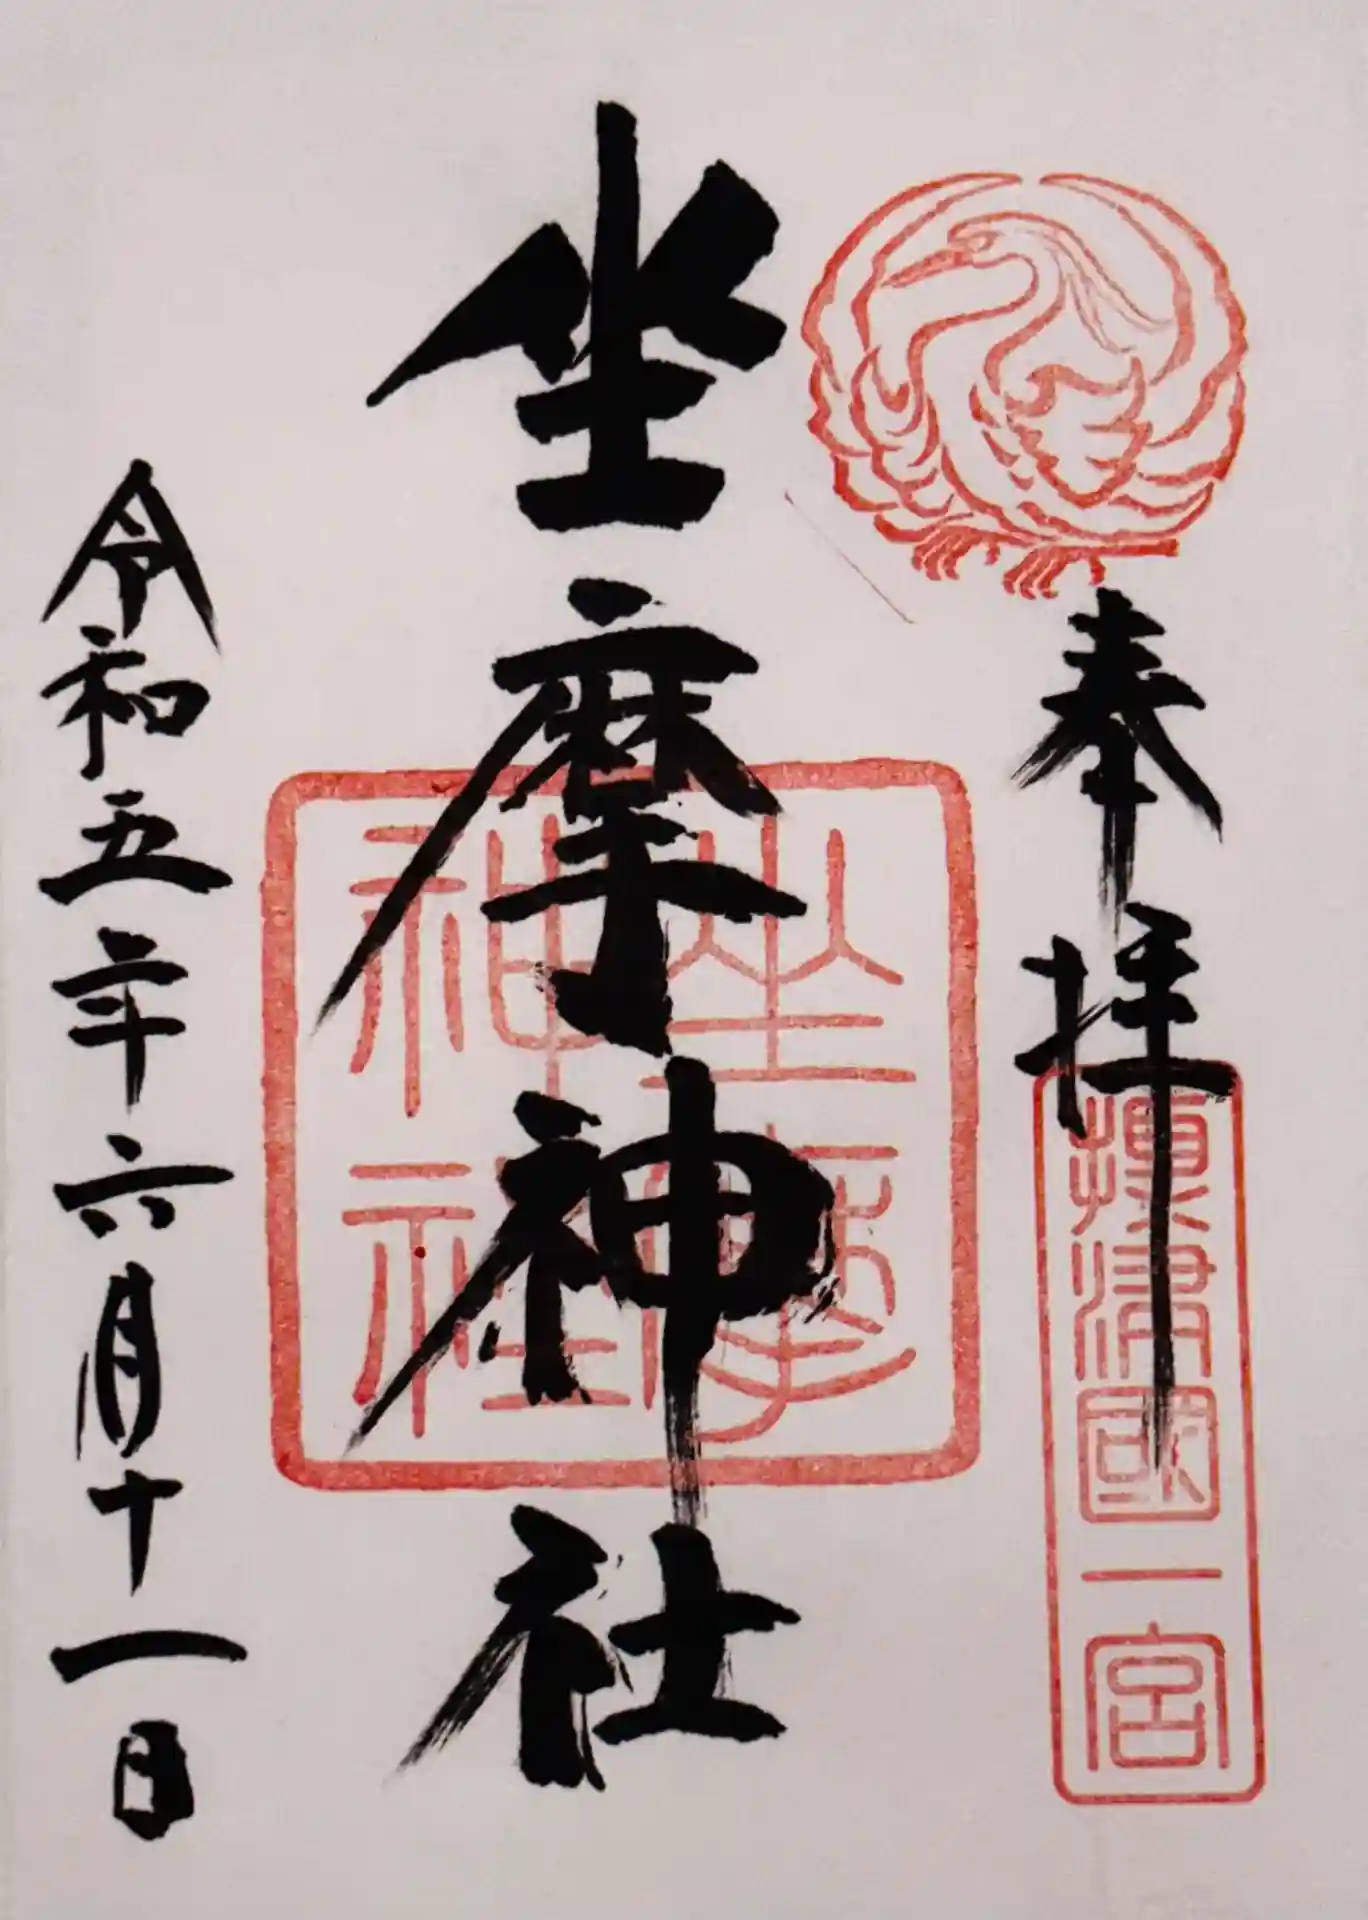 奉拝
攝津國一宮
坐摩神社
坐摩神社
令和五年六月十一日